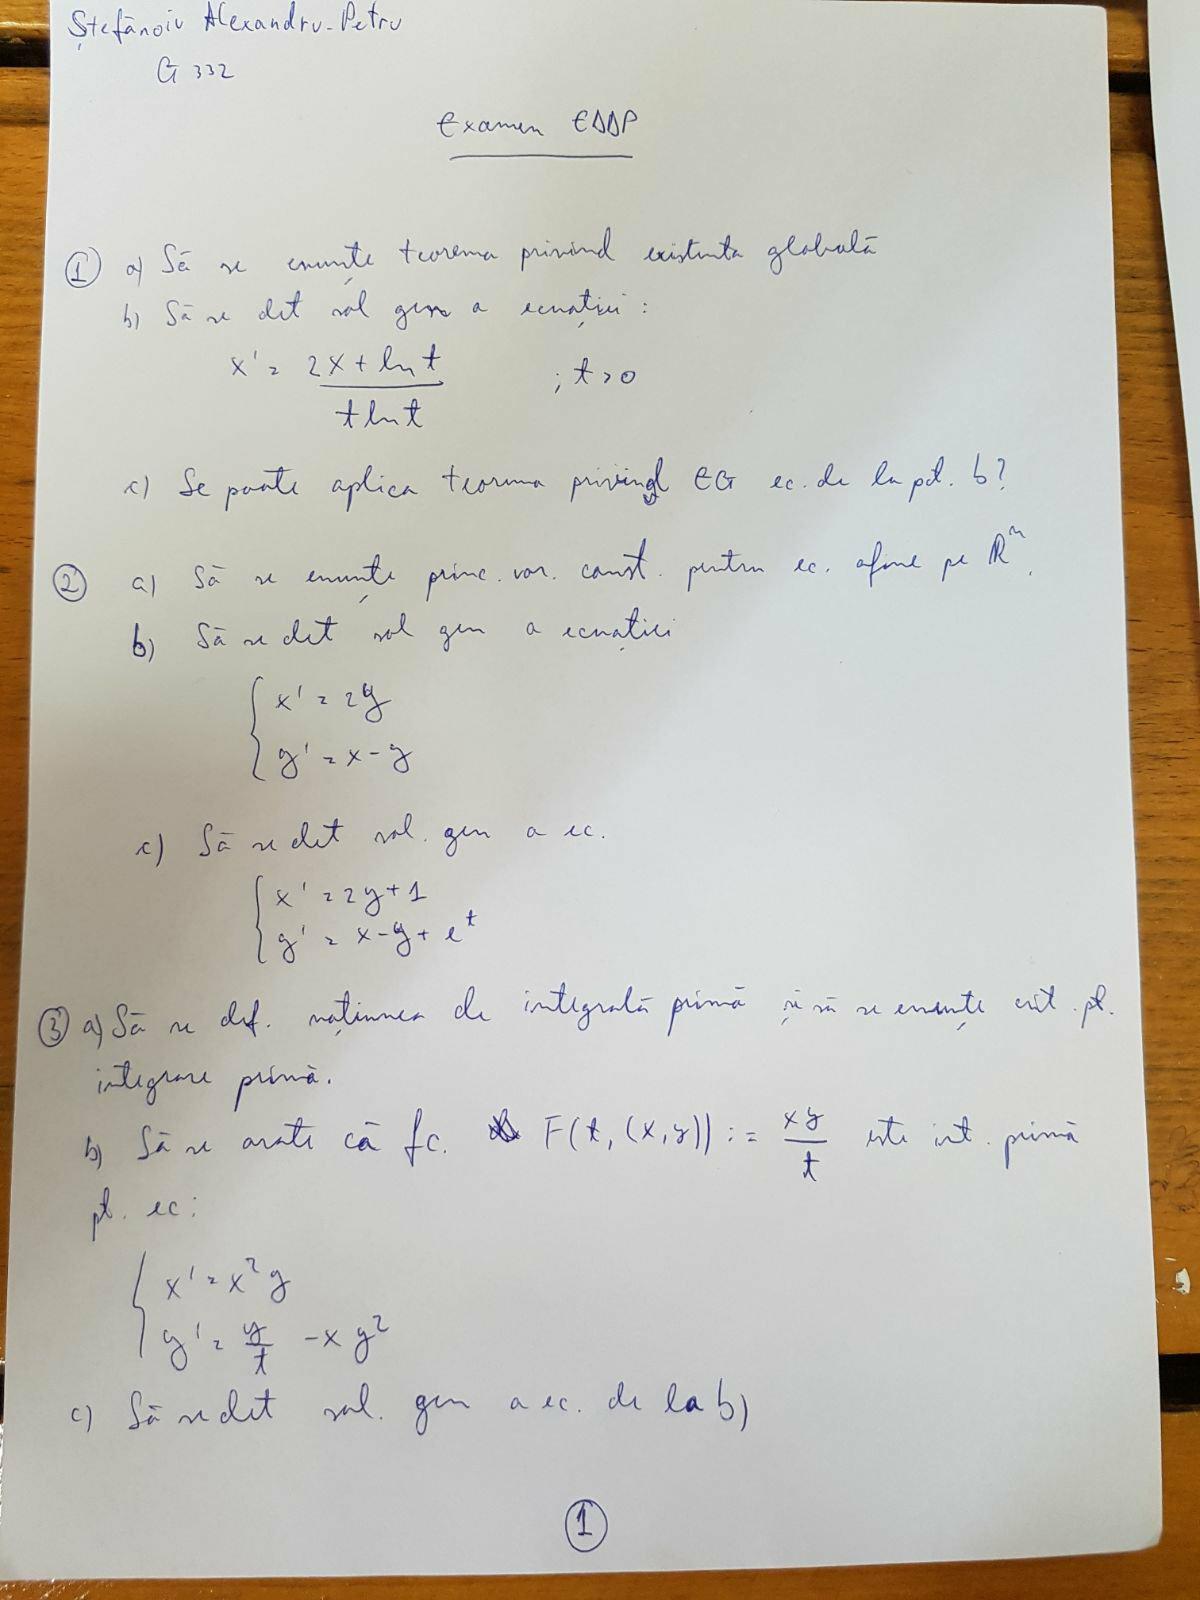 Ștefănoiu Alexandru-Petru
G 332
Examen EDDP
① a) Să se enunțe teorema privind existența globală
b) Să se det sol gen a ecuației:
x' = (2x + ln t) / (t ln t) ; t > 0
c) Se poate aplica teorema privind EG ec. de la pct. b?
② a) Să se enunțe princ. var. const. pentru ec. afine pe ℝⁿ.
b) Să se det sol gen a ecuației
{ x' = 2y
y' = x - y
c) Să se det sol. gen a ec.
{ x' = 2y + 1
y' = x - y + eᵗ
③ a) Să se def. noțiunea de integrală primă și să se enunțe crit. pt.
integrare primă.
b) Să se arate că fc. F(t, (x, y)) := xy / t este int. primă
pt. ec:
{ x' = x² y
y' = y/t - x y²
c) Să se det sol. gen a ec. de la b)
①